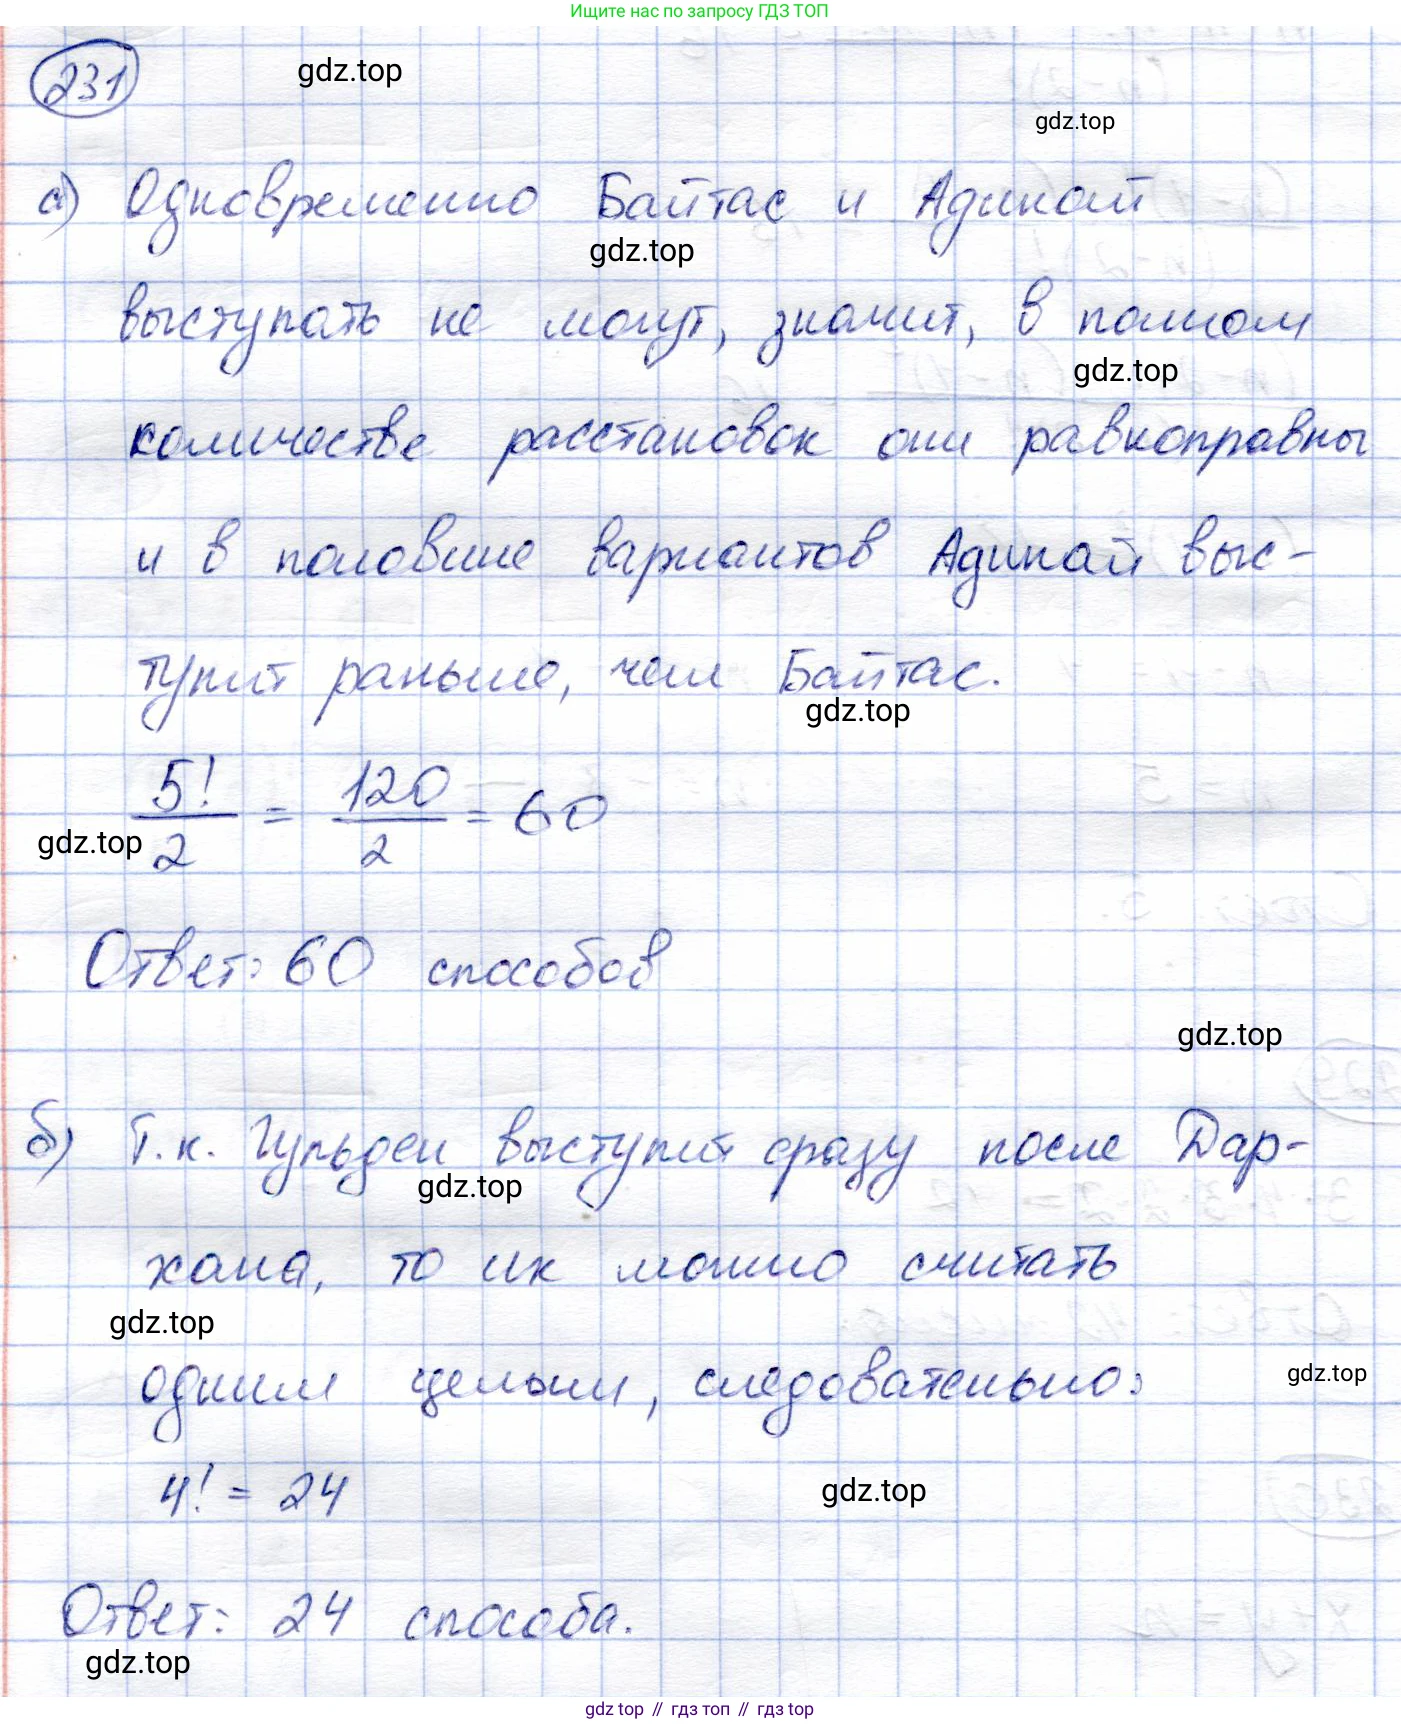 Ищите нас по запросу ГДЗ ТОП
231
gdz.top
gdz.top
а) Одновременно Байтас и Адинай
gdz.top
выступать не могут, значит, в полном
gdz.top
количестве расстановок они равноправны
и в половине вариантов Адинай выс-
тупит раньше, чем Байтас.
gdz.top
5!/2 = 120/2 = 60
gdz.top
Ответ: 60 способов
gdz.top
б) Т.к. Гульден выступит сразу после Дар-
gdz.top
хана, то их можно считать
gdz.top
одним целым, следовательно:
gdz.top
4! = 24
gdz.top
Ответ: 24 способа.
gdz.top
gdz top // гдз топ // gdz top